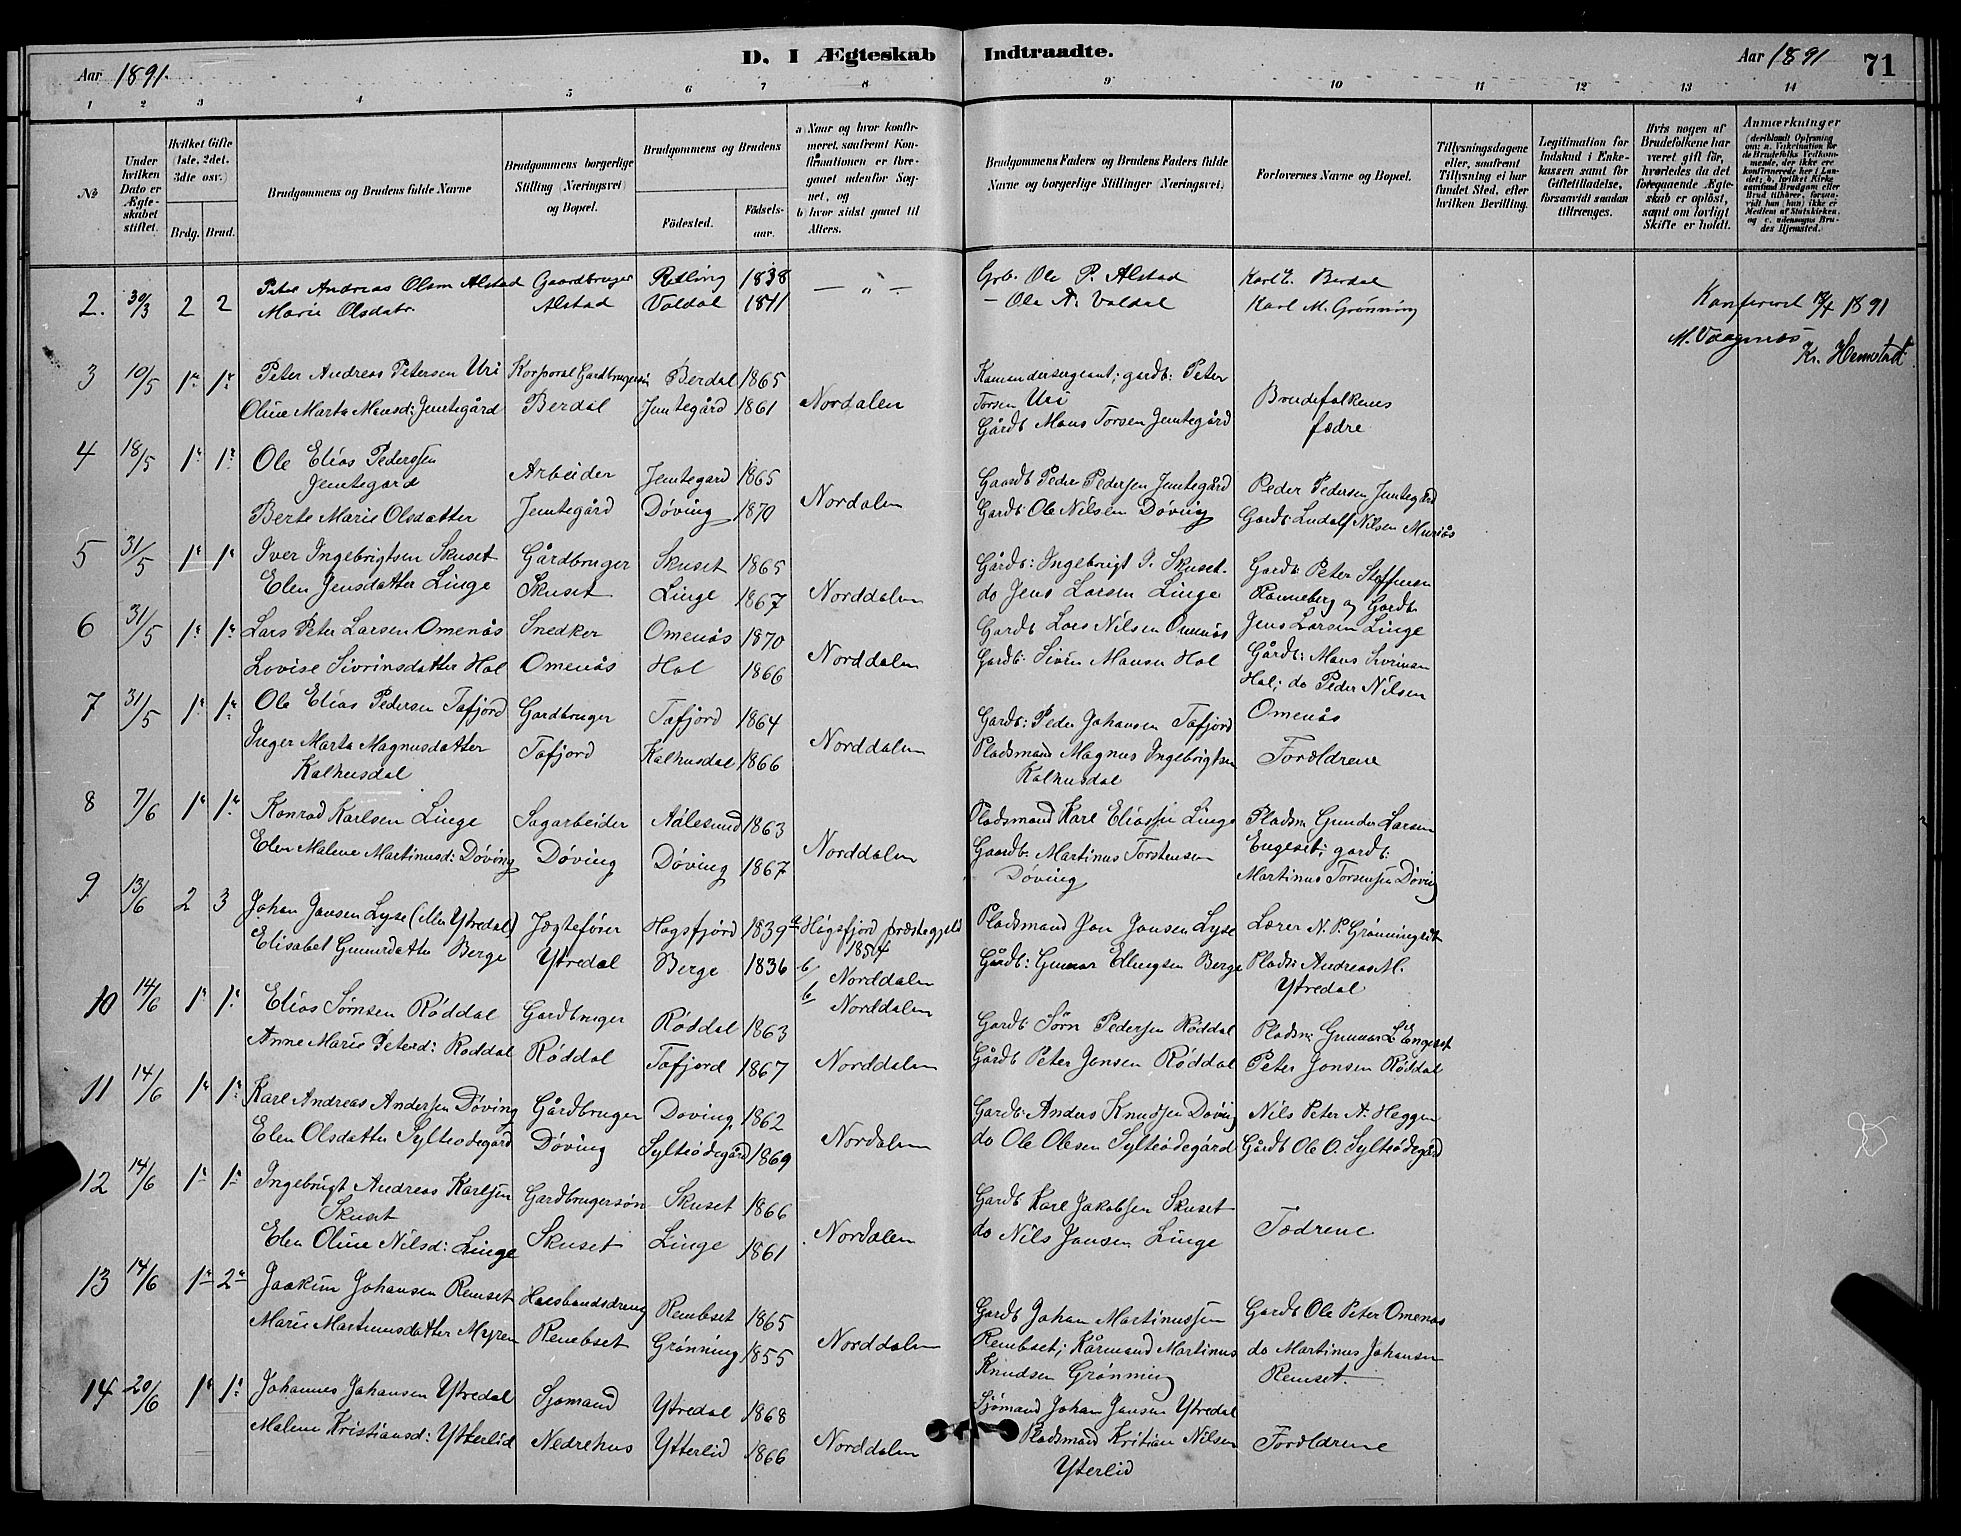 D. I Ægteskab Indtraadte.
Aar 1891.
Aar 1891
71
1 2 3 4 5 6 7 8 9 10 11 12 13 14
No
Under hvilken Dato er Ægteskabet stiftet.
Hvilket Gifte (1ste, 2det, 3die osv.)
Brdg. Brud.
Brudgommens og Brudens fulde Navne
Brudgommens borgerlige Stilling (Næringsvei) og Bopæl.
Brudgommens og Brudens
Födested.
Födsels-aar.
a) Naar og hvor konfirmeret, saafremt Konfirmationen er foregaaet udenfor Sognet, og
b) hvor sidst gaaet til Alters.
Brudgommens Faders og Brudens Faders fulde Navne og borgerlige Stillinger (Næringsvei.)
Forlovernes Navne og Bopæl.
Tillysningsdagene eller, saafremt Tillysning ei har fundet Sted, efter hvilken Bevilling.
Legitimation for Indskud i Enkekassen samt for Giftetilladelse, forsaavidt saadan tiltrænges.
Hvis nogen af Brudefolkene har været gift för, hvorledes da det foregaaende Ægteskab er oplöst, samt om lovligt Skifte er holdt.
Anmærkninger
(deriblandt Oplysning om: a. Vakcination for de Brudefolks Vedkommende, der ikke ere konfirmerede her i Landet; b. hvilket Kirkesamfund Brudgom eller Brud tilhører, forsaavidt han (hun) ikke er Medlem af Statskirken, og c. udensogns Brudes Hjemsted.)
2. 30/3 2 2 Peter Andreas Olsen Alstad Gaardbruger Relling 1838 — " — Grb. Ole P. Alstad Karl E. Berdal
Marie Olsdatr. Alstad Valdal 1841 — Ole N. Valdal Karl M. Grønning
Konfereret 1891
M. Vaagnæs
Kr. Hemstad
3 10/5 1ste 1ste Peter Andreas Petersen Uri Korporal Gardbrugersøn Berdal 1865 Kamandersergeant; gardb: Peter Torsen Uri Brudefolkenes
Oline Marta Mansd: Jemtegård Berdal Jemtegård 1861 Nordalen Gårdb Mons Torsen Jemtegård fædre
4 18/5 1. 1. Ole Elias Pederssen Jemtegard Arbeider Jemtegard 1865 Gaardb Peder Pedersen Jemtegård Peder Pedersen Jemtegård
Berte Marie Olsdatter Jemtegård Døving 1870 Nordalen Gardb: Ole Nilsen Døving Gardb: Ludolf Nilsen Muriås
5 31/5 1. 1. Iver Ingebrigtsen Skuset Gårdbruger Skuset 1865 Gårdb: Ingebrigt I. Skuset. Gardb: Peter Steffensen
Elen Jensdatter Linge Skuset Linge 1867 Norddalen do Jens Larsen Linge Ranneberg og Gardb. Jens Larsen Linge
6 31/5 1. 1. Lars Peter Larsen Omenås Snedker Omenås 1870 Gardb Lars Nilsen Omenås Gårdb: Mons Sivrinsen
Lovise Sivrinsdatter Hol Omenås Hol 1866 Norddalen Gardb: Sivrin Mansen Hol Hol; do Peder Nilsen Omenås
7 31/5 1. 1. Ole Elias Pedersen Tafjord Gardbruger Tafjord 1864 Gardb: Peder Johansen Tafjord
Inger Marta Magnusdatter Kalhusdal Tafjord Kalhusdal 1866 Norddalen Pladsmand Magnus Ingebrigtsen Kalhusdal Foreldrene
8 7/6 1. 1. Konrad Karlsen Linge Sagarbeider Aalesund 1863 Pladsmand Karl Eliassen Linge Pladsm: Gunder Larsen
Elen Malene Martinusd: Døving Døving Døving 1867 Norddalen Gaardb: Martinus Torstensen Døving Engeset; gardb: Martinus Torsensen Døving
9 13/6 2 3 Johan Jansen Lyse (eller Ytredal) Jægtefører Høgsfjord 1839 a/ Høgsfjord præstegjeld 1854 Pladsmand Jan Jansen Lyse Lærer N. P. Grønningsæt
Elisabet Gunnersdatter Berge Ytredal Berge 1836 b/ Norddalen Gårdb: Gunnar Ellingsen Berge Pladsm: Andreas M. Ytredal
10 14/6 1. 1. Elias Sørnsen Røddal Gardbruger Røddal 1863 b/ Norddalen Gardb Sørn Pedersen Røddal Pladsm: Gunnar L. Engeset
Anne Marie Petersd: Røddal Røddal Tafjord 1867 Norddalen Gårdb Peter Jonsen Røddal Peter Jonsen Røddal
11 14/6 1. 1. Karl Andreas Andersen Døving Gårdbruger Døving 1862 Gardb: Anders Knudsen Døving Nils Peter A. Heggen
Elen Olsdatter Sylteødegård Døving Sylteødegård 1869 Nordalen do Ole Olesen Sylteødegård Gårdb Ole O. Sylteødegård
12 14/6 1. 1. Ingebrigt Andreas Karlsen Skuset Gardbrugersøn Skuset 1866 Gardb Karl Jakobsen Skuset
Elen Oline Nilsd: Linge Skuset Linge 1861 Nordalen do Nils Jansen Linge Fædrene
13 14/6 1. 2. Joakim Johansen Remset Husbondsdreng Rembset 1865 Gardb Johan Martinussen Gardb Ole Peter Omenås
Marie Martinusdatter Myren Rembset Grønning 1855 Norddalen Rembset; Kårmand Martinus Knudsen Grønning do Martinus Johansen Remset.
14 20/6 1. 1. Johannes Johansen Ytredal Sjømand Ytredal 1868 Sjømand Johan Jansen Ytredal
Malene Kristiansd: Ytterlid Nedrehus Ytterlid 1866 Norddalen Pladsmand Kristian Nilsen Yterlid Foreldrene